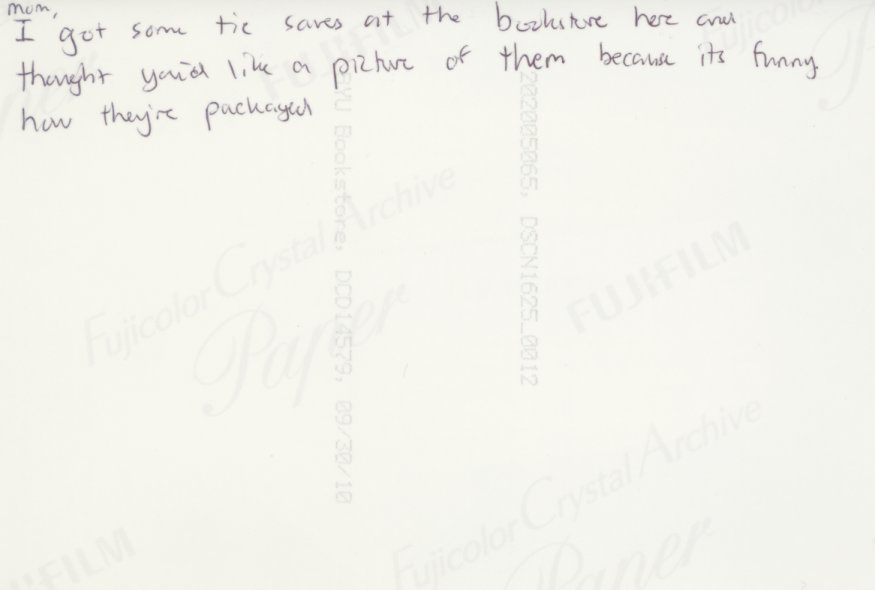 mom,
I got some tie saves at the bookstore here and
thought you'd like a picture of them because its funny
how they're packaged
BYU Bookstore, DCD14579, 09/30/10
202005065, DSCN1625_0012
FUJIFILM
Fujicolor Crystal Archive
Paper
FUJIFILM
Fujicolor Crystal Archive
Paper
FUJIFILM
Fujicolor
Paper